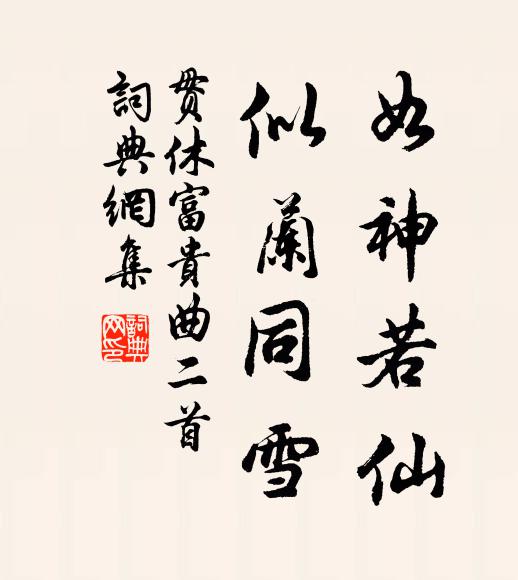 如神若仙
似蘭同雪
貫休富貴曲二首
詞典網集
詞典网印